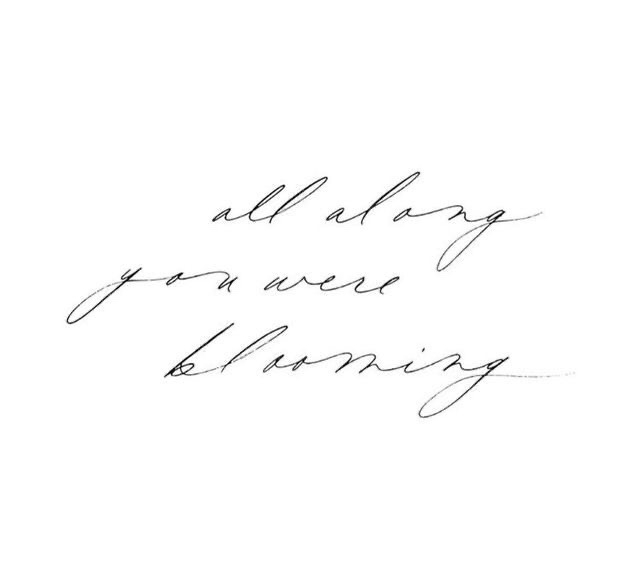 all along
you were
blooming